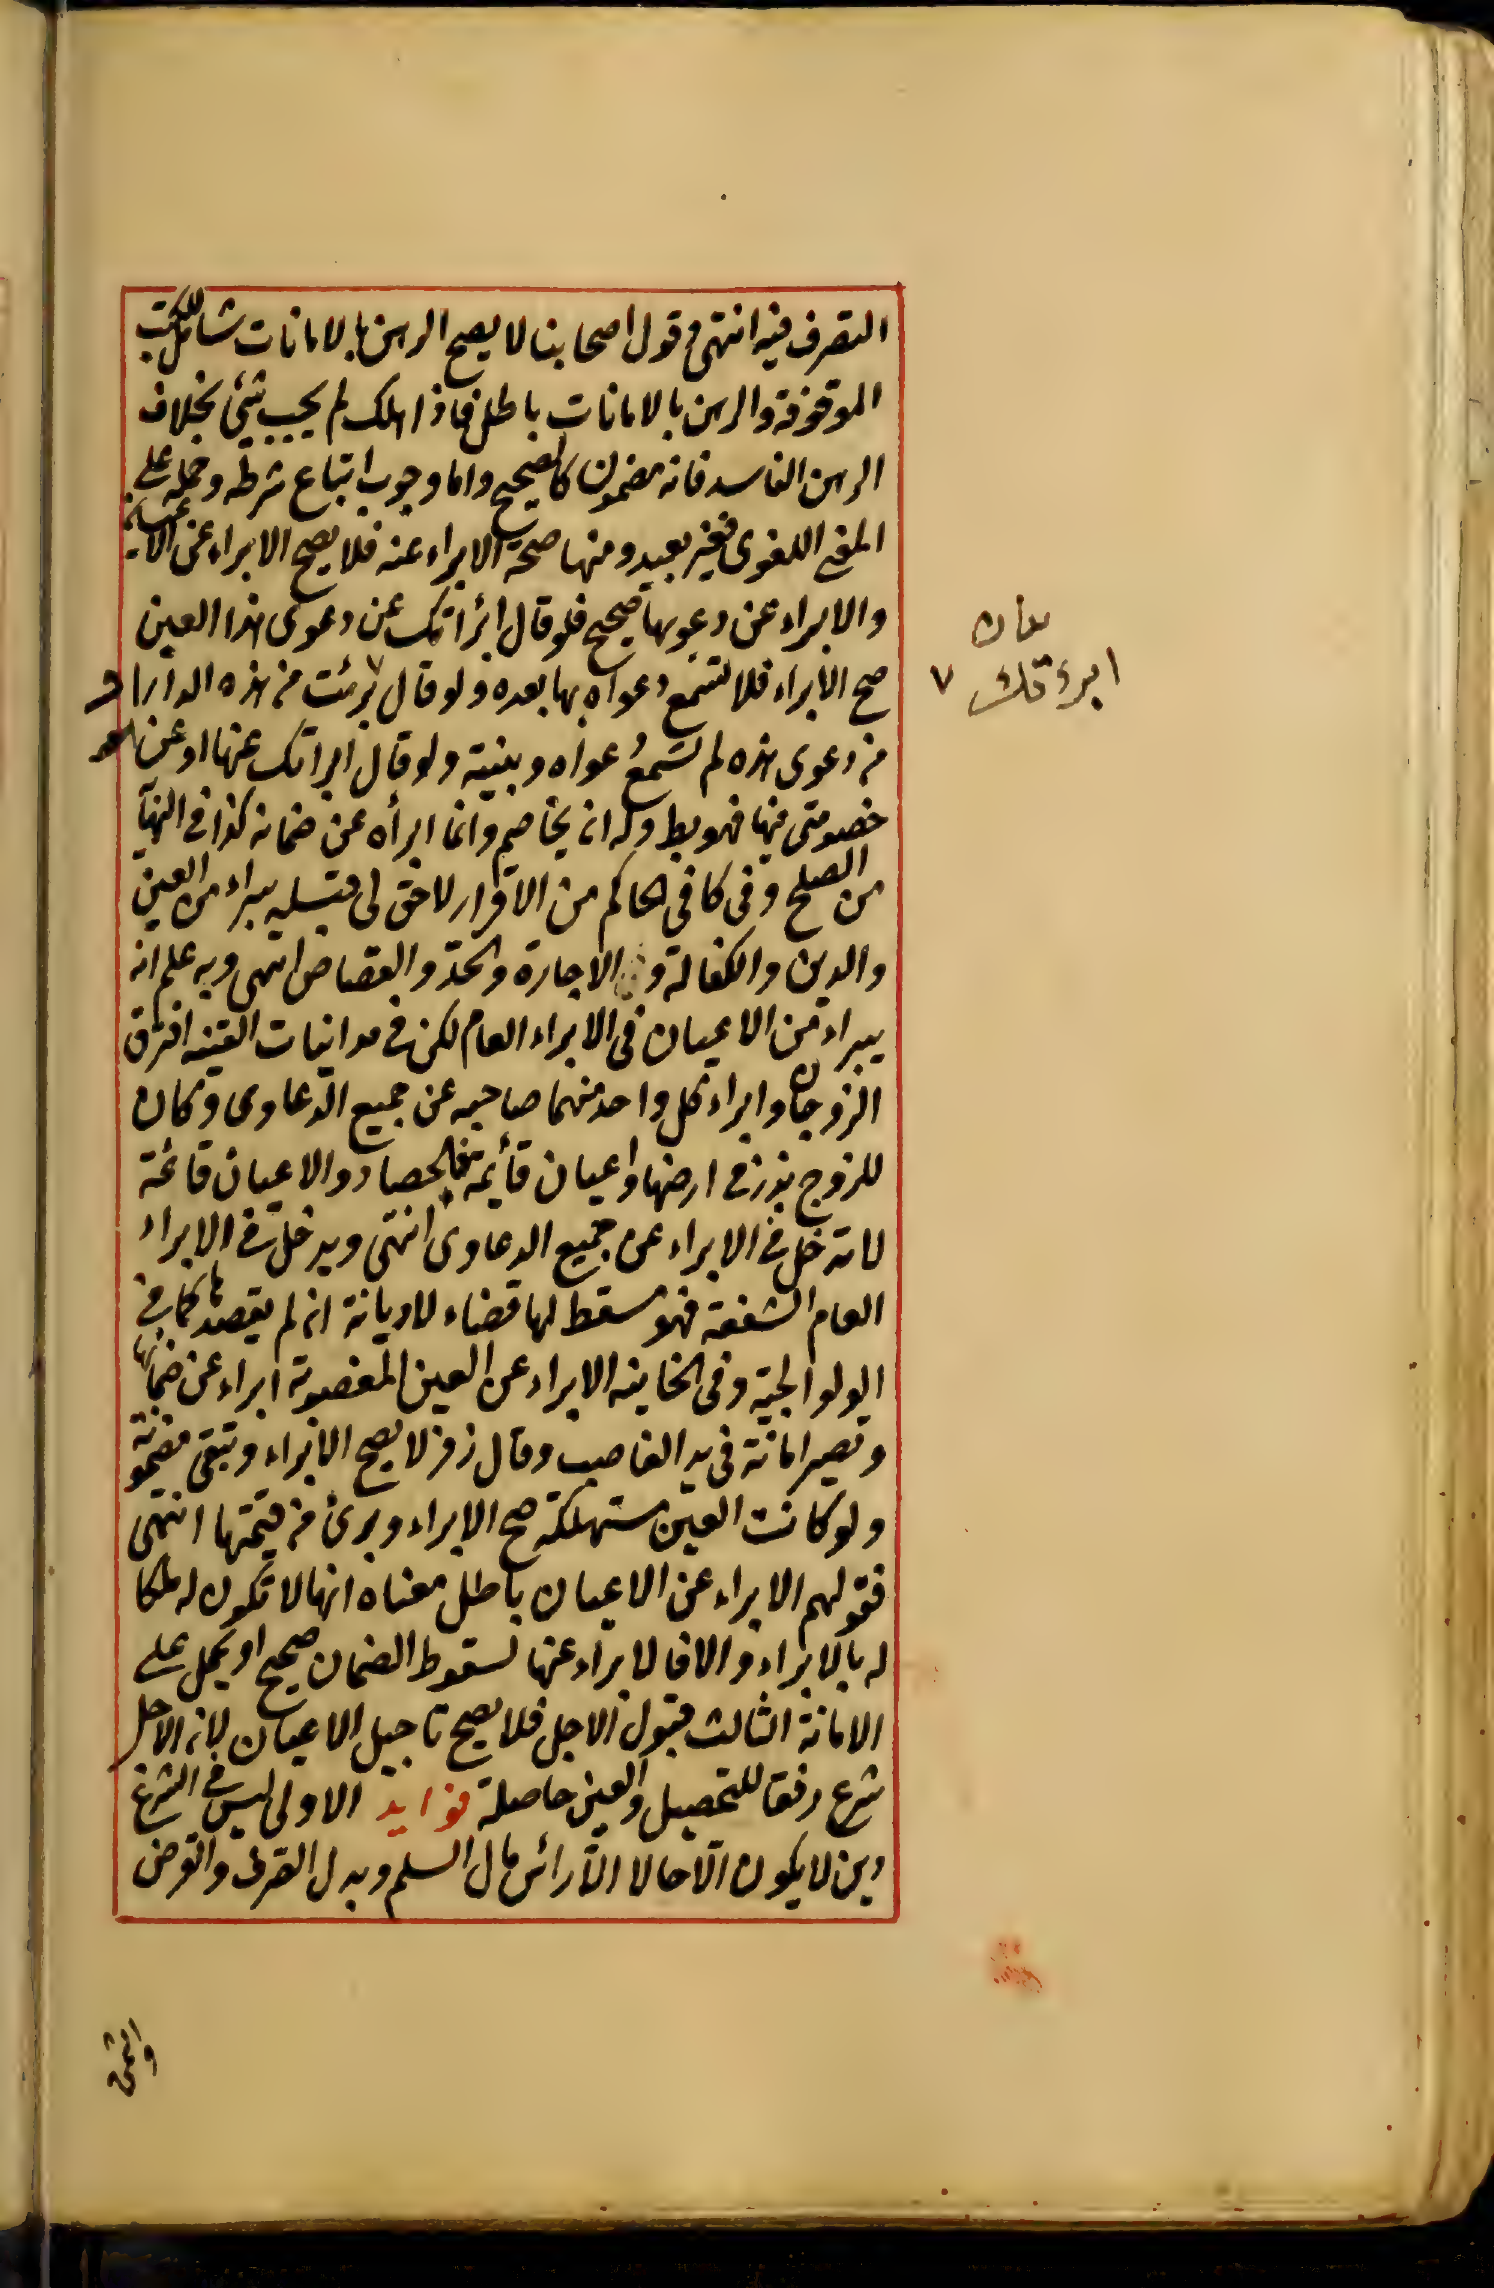 التصرف فيه انتهى وقول اصحابنا لا يصح الرهن بالامانات شامل للكتب
الموقوفة والرهن بالامانات باطل فاذا هلك لم يجب شئ بخلاف
الرهن الفاسد فانه مضمون كالصحيح واما وجوب اتباع شرطه وحمله على
المعنى اللغوى فغير بعيد ومنها صحة الابراء عنه فلا يصح الابراء عن الاعيان
والابراء عن دعويها صحيح فلو قال ابرأتك عن دعوى هذا العين
صح الابراء فلا تسمع دعواه بها بعده ولو قال برئت من هذه الدار او
من دعوى هذه لم تسمع دعواه وبينته ولو قال ابراتك عنها او عن
خصومتى فيها فهو بط وله ان يخاصم وانما ابرأه عن ضمانه كذا فى النهاية
من الصلح وفى كافى الحاكم من الاقرار لا حق لى قبله يبراء من العين
والدين والكفالة والاجارة والحد والقصاص انتهى وبه علم انه
يبراء من الاعيان فى الابراء العام لكن فى مداينات القنية افترق
الزوجان وابراء كل واحد منهما صاحبه عن جميع الدعاوى وكان
للزوج بذر فى ارضها واعيان قائمة فالحصاد والاعيان قائمة
لا تدخل فى الابراء عن جميع الدعاوى انتهى ويدخل فى الابراء
العام الشفعة فهو مسقط لها قضاء لا ديانة ان لم يقصدها كما فى
الولوالجية وفى الخانية الابراء عن العين المغصوبة ابراء عن ضمانها
وتصير امانة فى يد الغاصب وقال زفر لا يصح الابراء وتبقى مضمونة
ولو كانت العين مستهلكة صح الابراء وبرئ من قيمتها انتهى
فقولهم الابراء عن الاعيان باطل معناه انها لا تكون له ملكا
له بالابراء والا فالابراء عنها لسقوط الضمان صحيح او يحمل على
الامانة الثالث قبول الاجل فلا يصح تاجيل الاعيان لان الاجل
شرع رفقا للتحصيل والعين حاصلة فوايد الاولى ليس فى الشرع
دين لا يكون الا حالا الا رأس مال السلم وبدل الصرف والقرض
ابرءتك ٧
والثمن